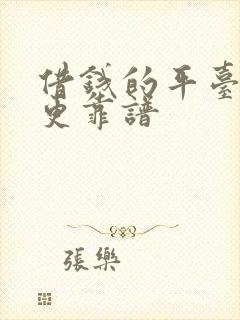 借錢的平臺
更靠譜
張樂